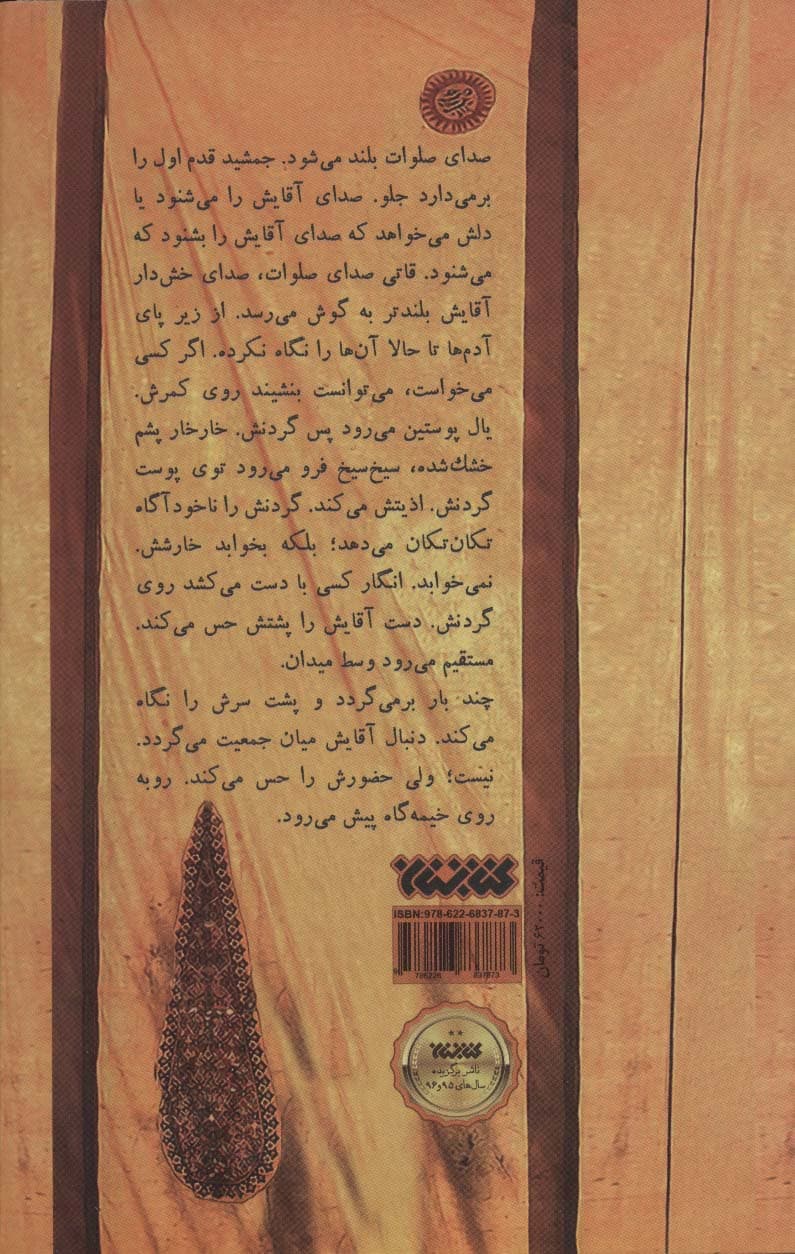 صدای صلوات بلند می‌شود. جمشید قدم اول را
برمی‌دارد جلو. صدای آقایش را می‌شنود یا
دلش می‌خواهد که صدای آقایش را بشنود که
می‌شنود. قاتی صدای صلوات، صدای خش‌دار
آقایش بلندتر به گوش می‌رسد. از زیر پای
آدم‌ها تا حالا آن‌ها را نگاه نکرده. اگر کسی
می‌خواست، می‌توانست بنشیند روی کمرش.
یال پوستین می‌رود پس گردنش. خارخار پشم
خشك‌شده، سیخ‌سیخ فرو می‌رود توی پوست
گردنش. اذیتش می‌کند. گردنش را ناخودآگاه
تکان‌تکان می‌دهد؛ بلکه بخوابد خارشش.
نمی‌خوابد. انگار کسی با دست می‌کشد روی
گردنش. دست آقایش را پشتش حس می‌کند.
مستقیم می‌رود وسط میدان.
چند بار برمی‌گردد و پشت سرش را نگاه
می‌کند. دنبال آقایش میان جمعیت می‌گردد.
نیست؛ ولی حضورش را حس می‌کند. رو به
روی خیمه‌گاه پیش می‌رود.
کتابستان
ISBN:978-622-6837-87-3
9 786226 837873
قیمت: ۶۲۰۰۰ تومان
کتابستان
ناشر برگزیده
سال‌های ۹۵ و ۹۶